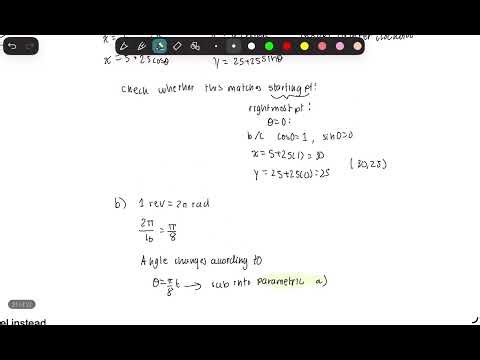 x = 5 + 25cosθ
y = 25 + 25sinθ
check whether this matches starting pt:
rightmost pt:
θ=0:
b/c cos0=1, sin0=0
x = 5+25(1) = 30
y = 25+25(0) = 25
(30,25)
b) 1 rev = 2π rad
2π/16 = π/8
Angle changes acording to
θ = π/8 t → sub into parametric a)
el instead